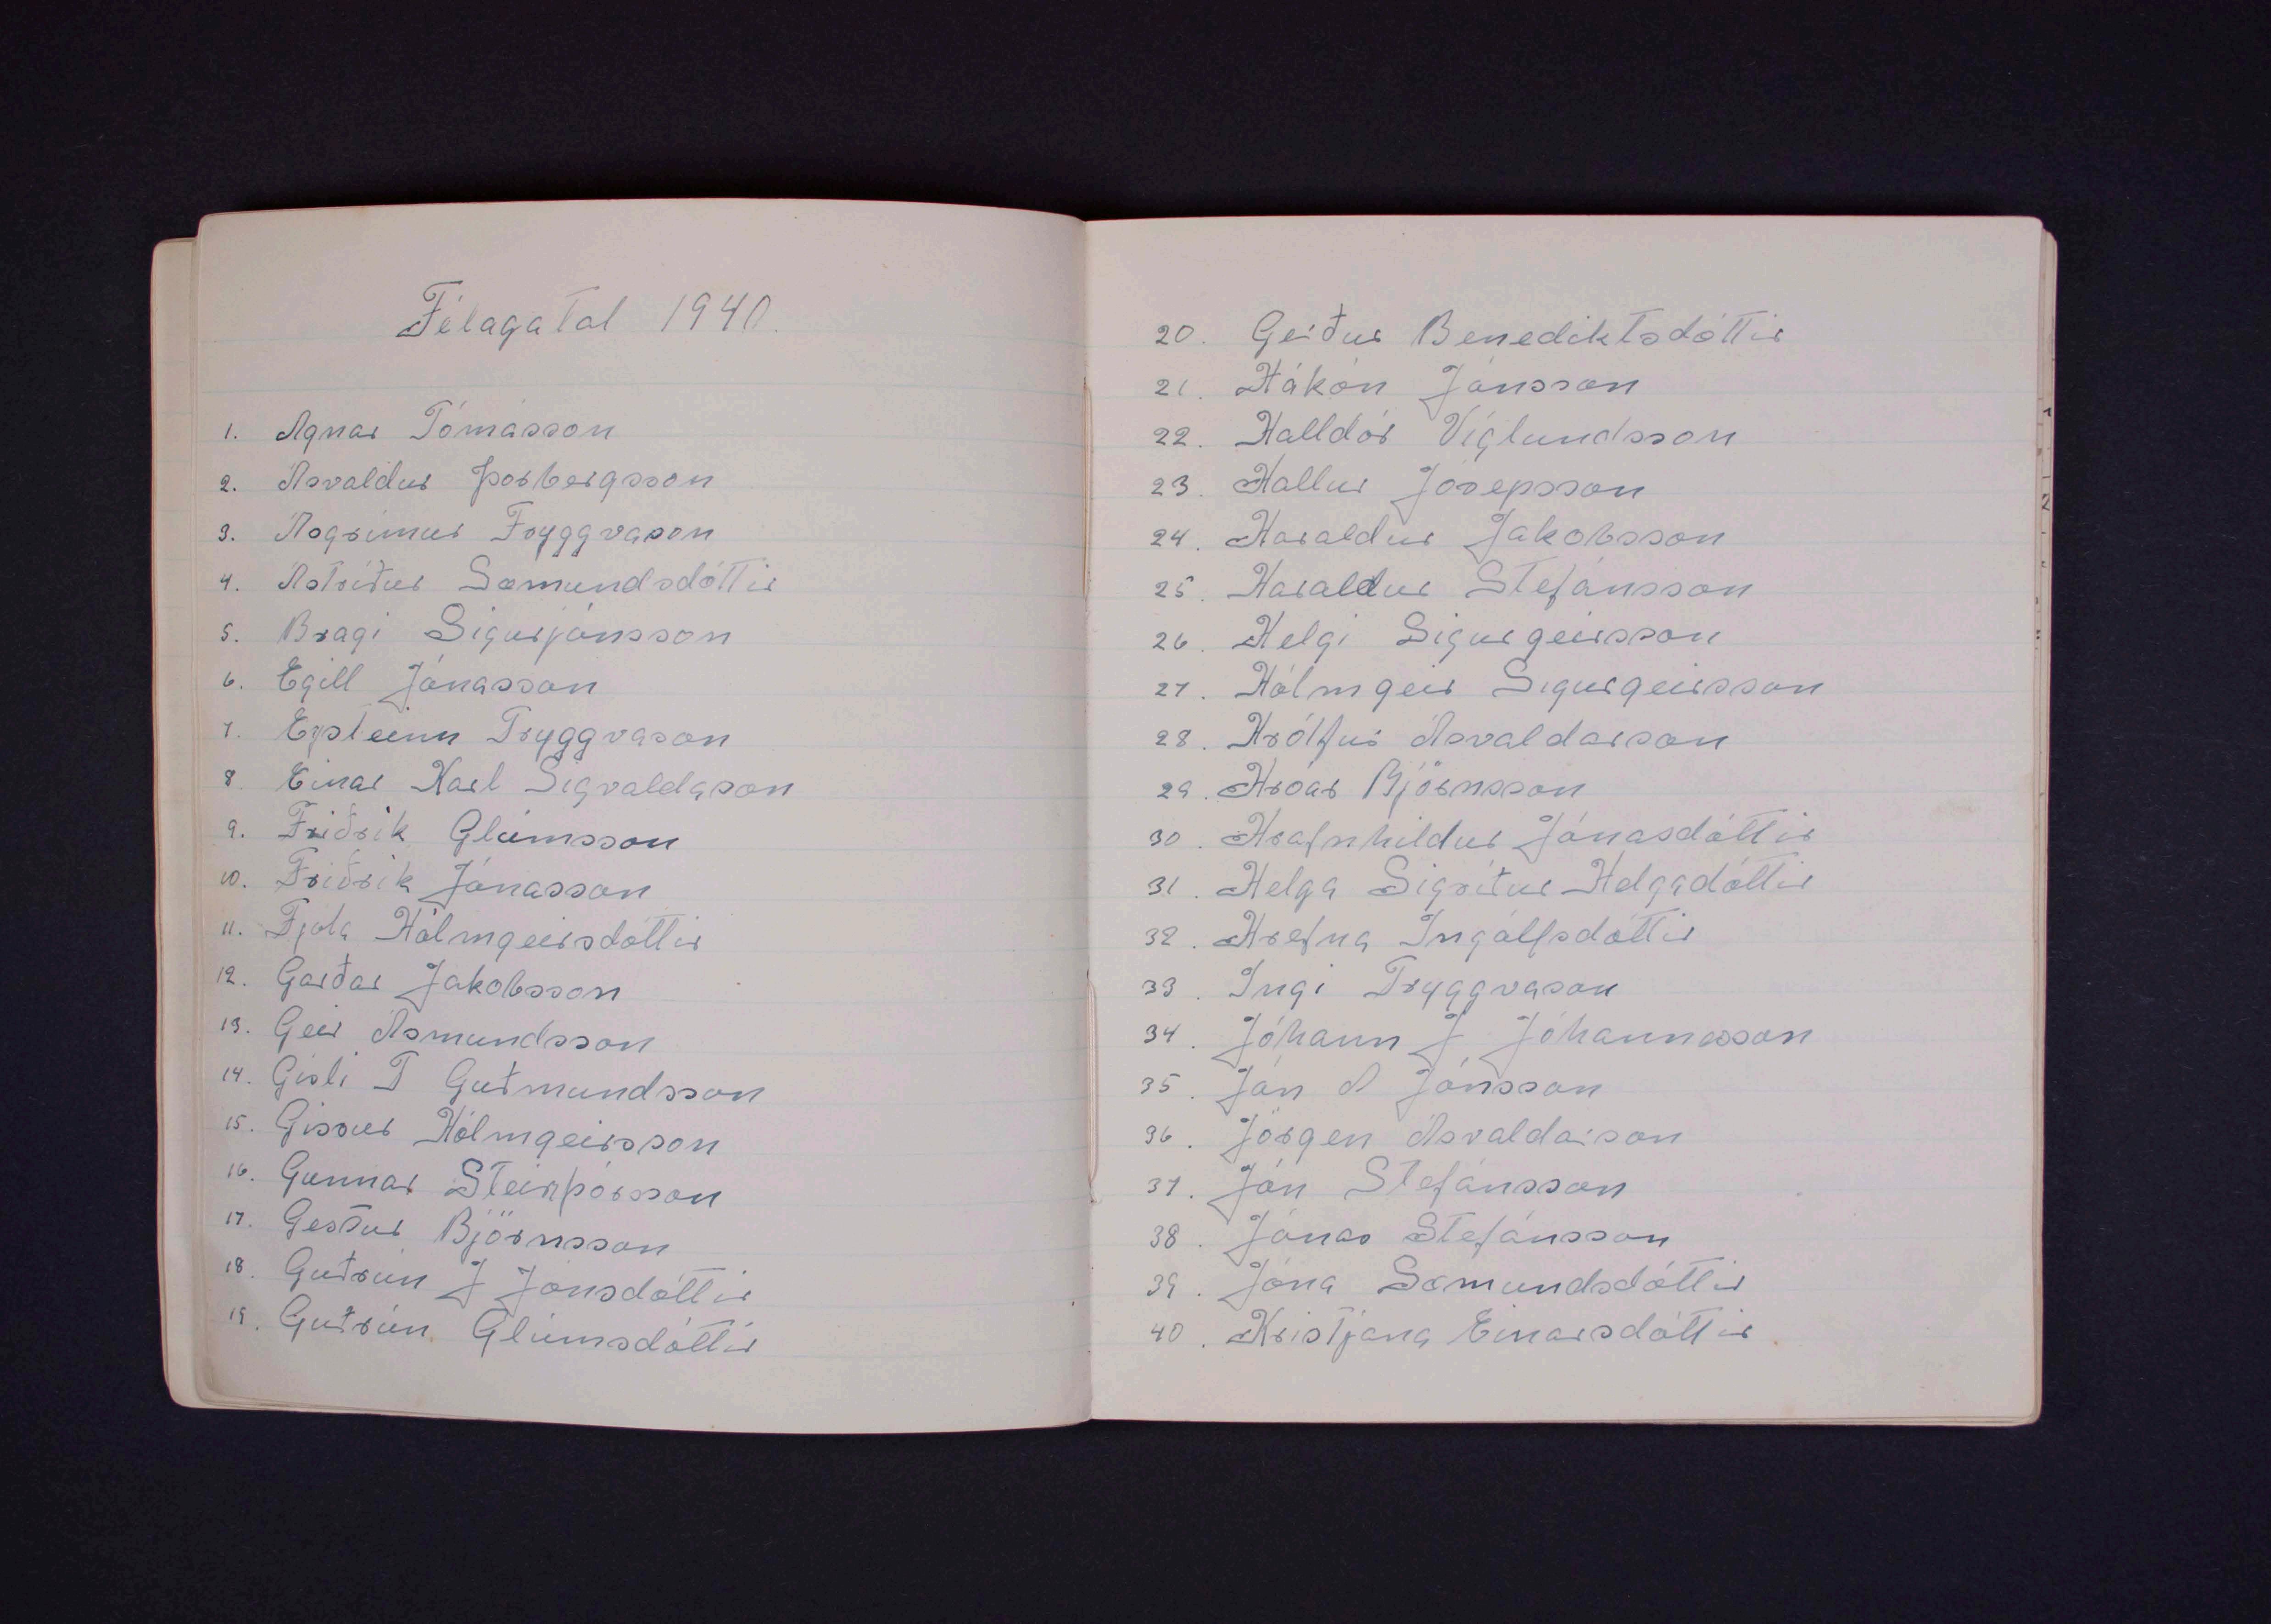 Félagatal 1940.
1. Agnar Tómasson
2. Ásvaldur Þorbergsson
3. Ásgrímur Tryggvason
4. Ástríður Sæmundsdóttir
5. Bragi Sigurjónsson
6. Egill Jónasson
7. Eysteinn Tryggvason
8. Einar Karl Sigvaldason
9. Friðrik Glúmsson
10. Friðrik Jónasson
11. Fjóla Hólmgeirsdóttir
12. Garðar Jakobsson
13. Geir Ásmundsson
14. Gísli T Guðmundsson
15. Gissur Hólmgeirsson
16. Gunnar Steinþórsson
17. Gestur Björnsson
18. Guðrún J Jónsdóttir
19. Guðrún Glúmsdóttir
20. Gerður Benediktsdóttir
21. Hákon Jónsson
22. Halldór Víglundsson
23. Hallur Jósepsson
24. Haraldur Jakobsson
25. Haraldur Stefánsson
26. Helgi Sigurgeirsson
27. Hólmgeir Sigurgeirsson
28. Hrólfur Ásvaldarson
29. Hróar Björnsson
30. Hrafnhildur Jónasdóttir
31. Helga Sigríður Helgadóttir
32. Hrefna Ingólfsdóttir
33. Ingi Tryggvason
34. Jóhann J Jóhannesson
35. Jón A Jónsson
36. Jörgen Ásvaldarson
37. Jón Stefánsson
38. Jónas Stefánsson
39. Jóna Sæmundsdóttir
40. Kristjana Einarsdóttir